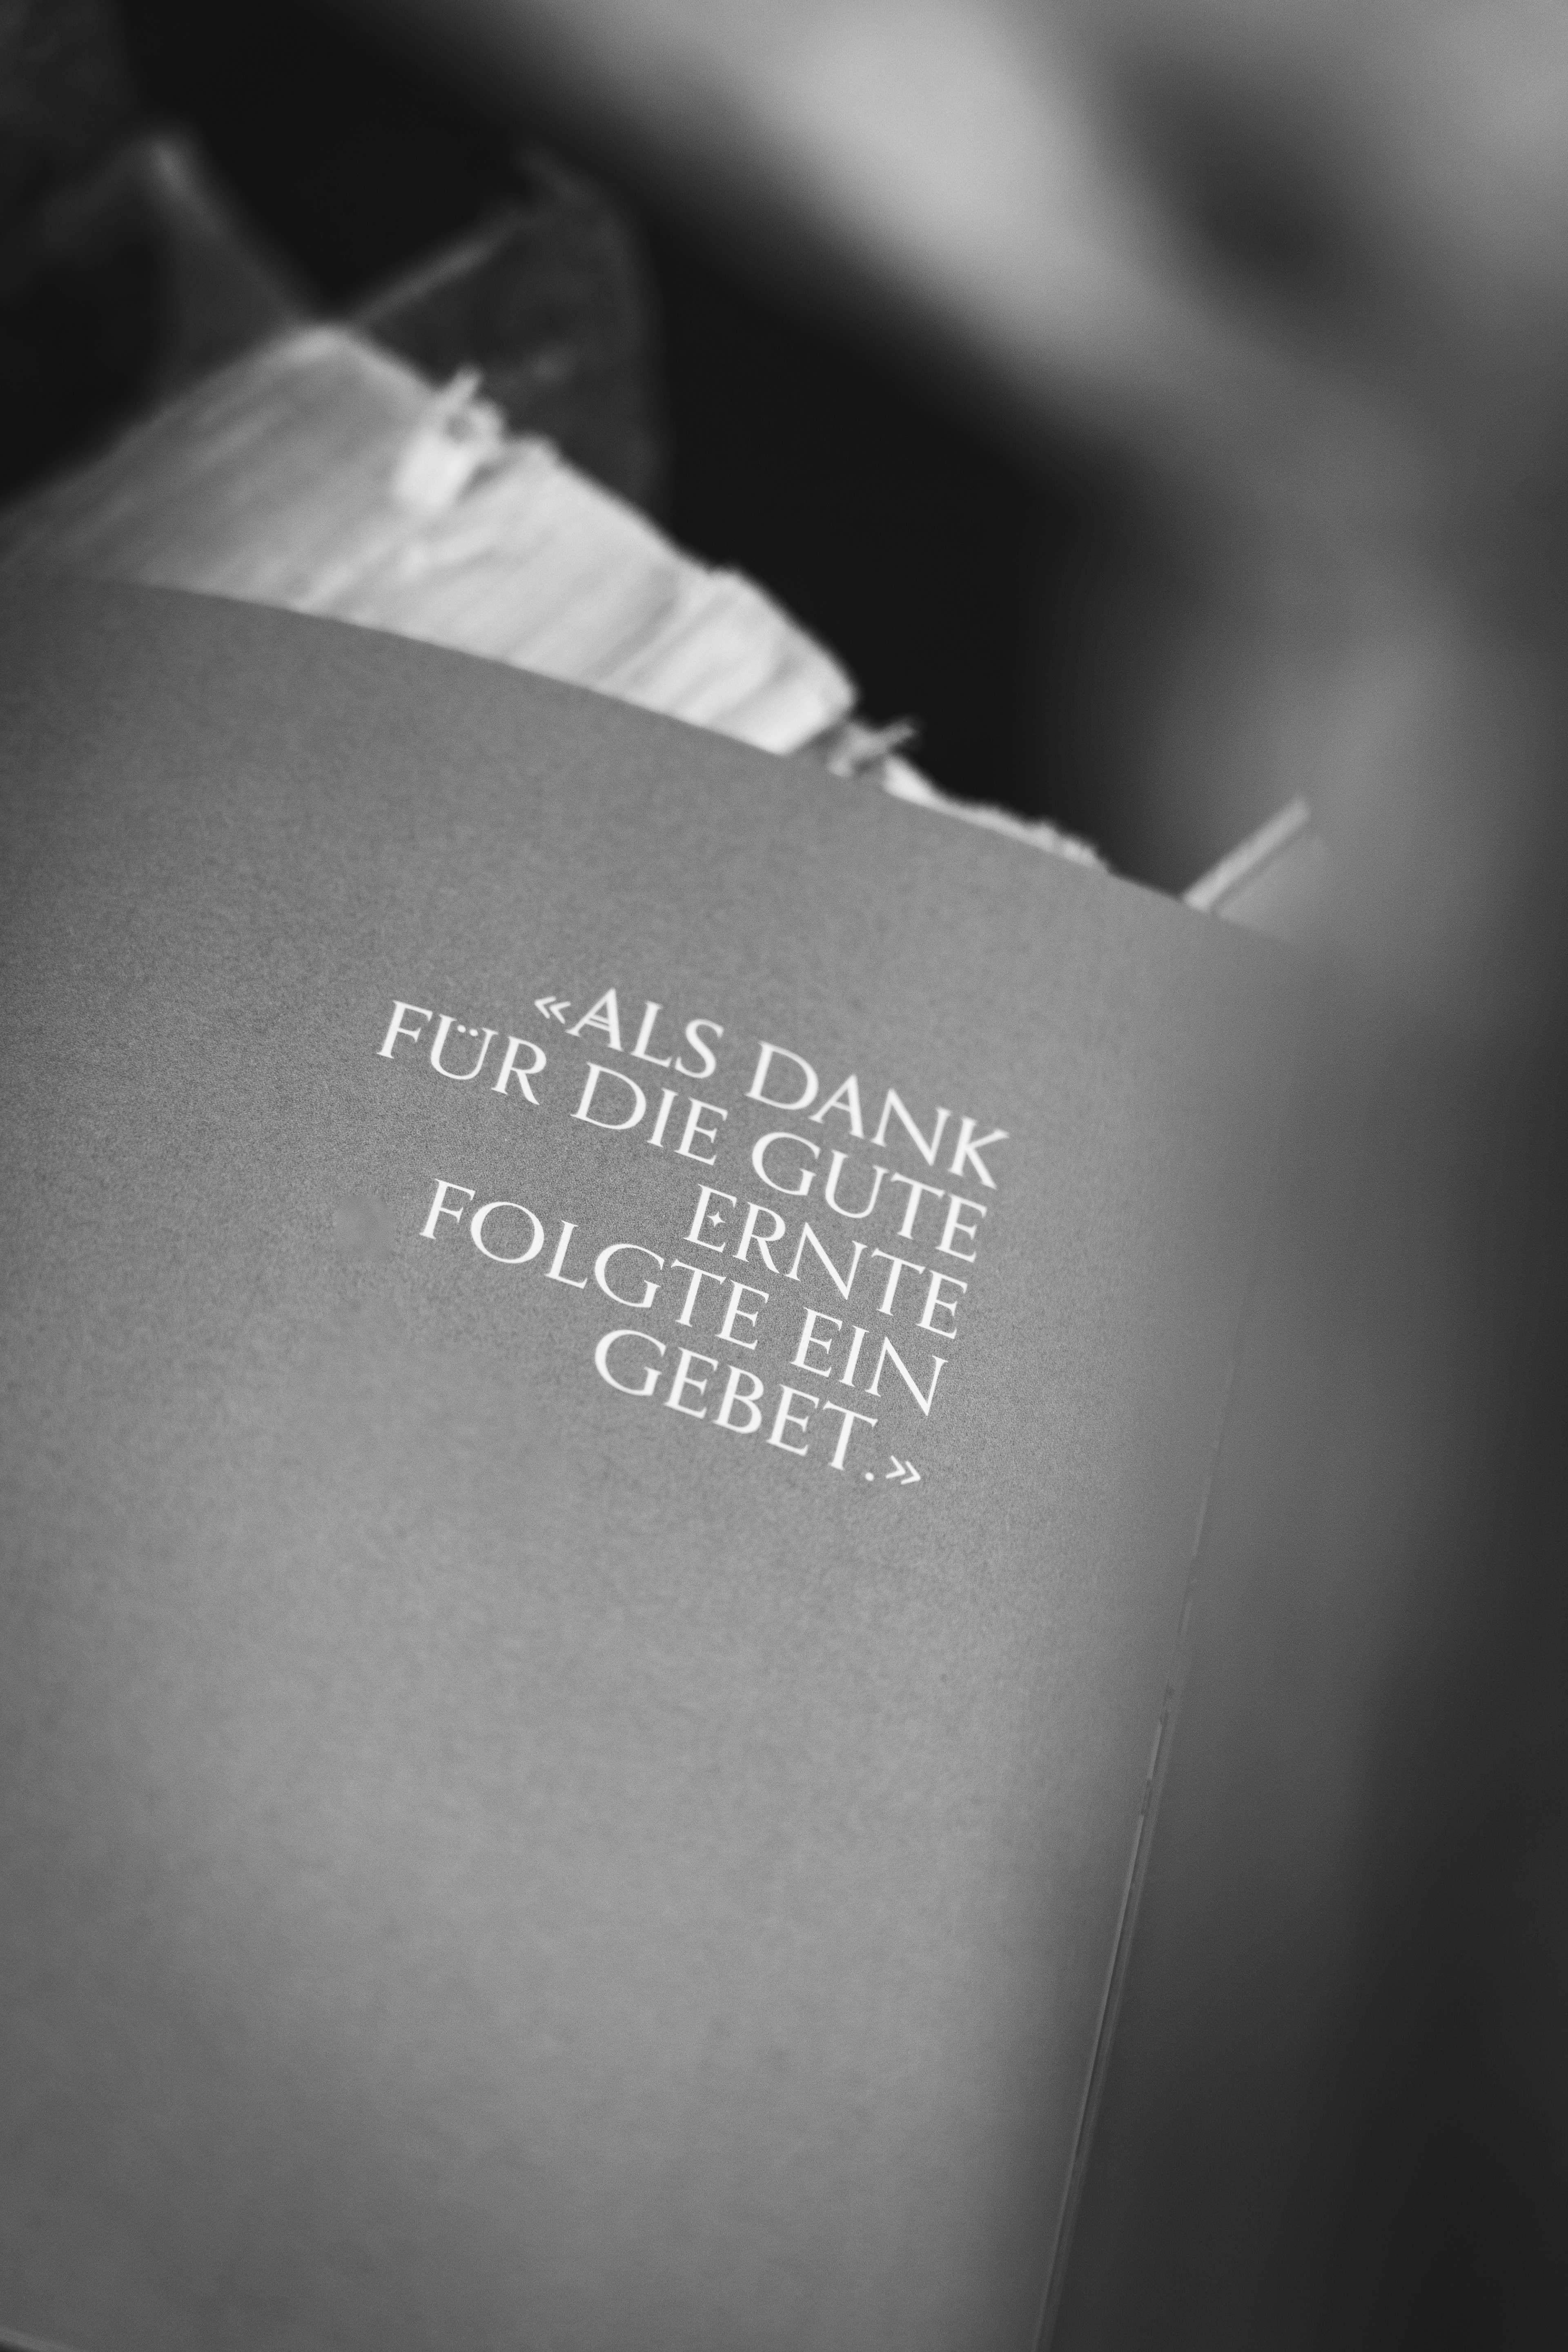 «ALS DANK
FÜR DIE GUTE
ERNTE
FOLGTE EIN
GEBET.»